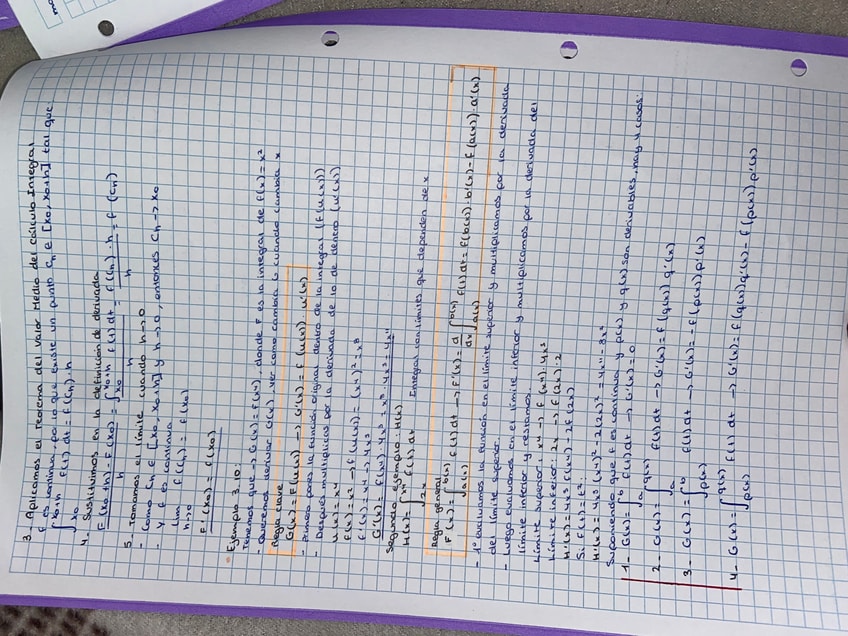 3 - Aplicamos el Teorema del Valor Medio del cálculo Integral
f es continua, por lo que existe un punto Cₕ ∈ [x₀, x₀+h] tal que
∫_{x₀}^{x₀+h} f(t) dt = f(Cₕ)·h
4 - Sustituimos en la definición de derivada
F(x₀+h) - F(x₀) / h = ∫_{x₀}^{x₀+h} f(t) dt / h = f(Cₕ)·h / h = f(Cₕ)
5 - Tomamos el límite cuando h→0
- Como Cₕ ∈ [x₀, x₀+h] y h→0, entonces Cₕ → x₀
- Y f es continua
lim_{h→0} f(Cₕ) = f(x₀)
F'(x₀) = f(x₀)
- Ejemplo 3.10:
Tenemos que → G(x) = F(x⁴), donde F es la integral de f(x) = x²
- Queremos derivar G(x), ver como cambia G cuando cambia x
Regla clave
G(x) = F(u(x)) → G'(x) = f(u(x))·u'(x)
- Primero pones la función original dentro de la integral (f(u(x)))
- Después multiplicas por la derivada de lo de dentro (u'(x))
u(x) = x⁴
f(x) = x² → f(u(x)) = (x⁴)² = x⁸
f'(x) = x⁴ → 4x³
G'(x) = f(x⁴)·4x³ = x⁸·4x³ = 4x¹¹
Segundo ejemplo: H(x)
H(x) = ∫_{2x}^{x⁴} f(t) dt Integral con límites que dependen de x
Regla general
F'(x) = ∫_{a(x)}^{b(x)} f(t) dt → F'(x) = d/dx ∫_{a(x)}^{b(x)} f(t) dt = f(b(x))·b'(x) - f(a(x))·a'(x)
- 1º evaluamos la función en el límite superior y multiplicamos por la derivada
del límite superior.
- Luego evaluamos en el límite inferior y multiplicamos por la derivada del
límite inferior y restamos.
Límite superior: x⁴ → f(x⁴)·4x³
Límite inferior: 2x → f(2x)·2
H'(x) = 4x³ f(x⁴) - 2f(2x)
Si f(t) = t²
H'(x) = 4x³(x⁴)² - 2(2x)² = 4x¹¹ - 8x²
Suponiendo que f es continua y p(x) y q(x) son derivables, hay 4 casos:
1 - G(x) = ∫_a^b f(t) dt → G'(x) = 0
2 - G(x) = ∫_a^{q(x)} f(t) dt → G'(x) = f(q(x)) q'(x)
3 - G(x) = ∫_{p(x)}^b f(t) dt → G'(x) = -f(p(x)) p'(x)
4 - G(x) = ∫_{p(x)}^{q(x)} f(t) dt → G'(x) = f(q(x)) q'(x) - f(p(x)) p'(x)